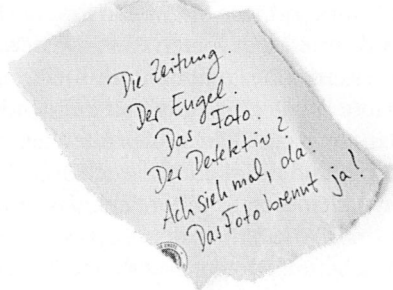 Die Zeitung.
Der Engel.
Das Foto.
Der Detektiv?
Ach sieh mal, da:
Das Foto brennt ja!